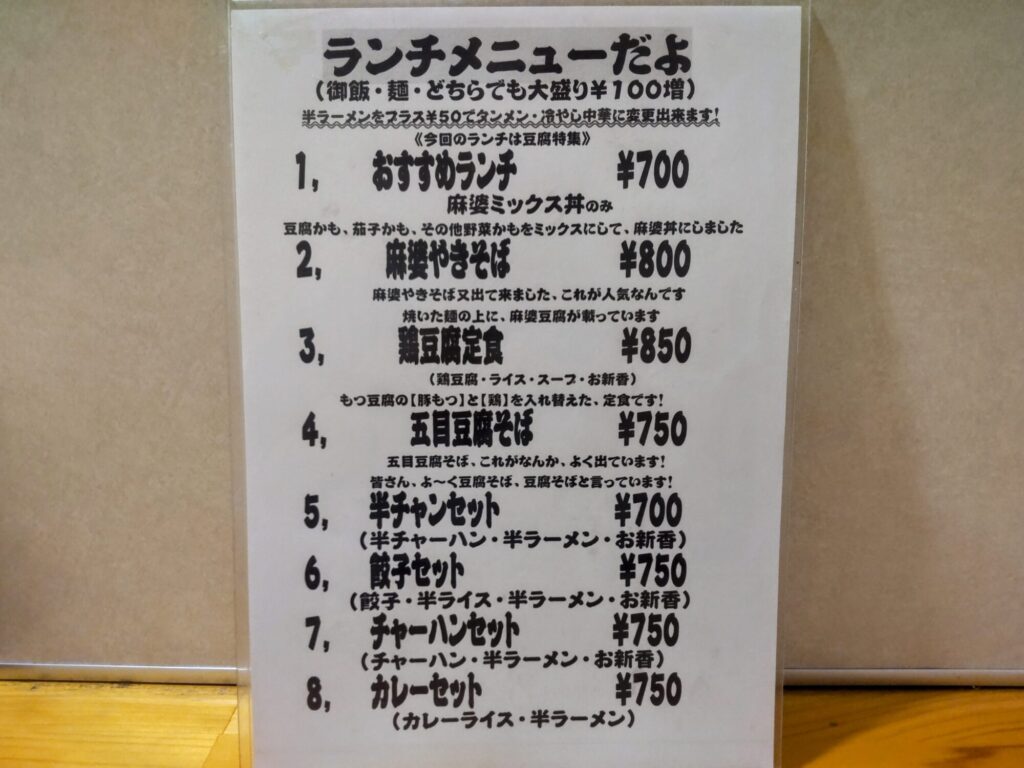 ランチメニューだよ
(御飯・麺・どちらでも大盛り¥100増)
半ラーメンをプラス¥50でタンメン・冷やし中華に変更出来ます!
《今回のランチは豆腐特集》
1, おすすめランチ ¥700
麻婆ミックス丼のみ
豆腐かも、茄子かも、その他野菜かもをミックスにして、麻婆丼にしました
2, 麻婆やきそば ¥800
麻婆やきそば又出て来ました、これが人気なんです
焼いた麺の上に、麻婆豆腐が載っています
3, 鶏豆腐定食 ¥850
(鶏豆腐・ライス・スープ・お新香)
もつ豆腐の【豚もつ】と【鶏】を入れ替えた、定食です!
4, 五目豆腐そば ¥750
五目豆腐そば、これがなんか、よく出ています!
皆さん、よ～く豆腐そば、豆腐そばと言っています!
5, 半チャンセット ¥700
(半チャーハン・半ラーメン・お新香)
6, 餃子セット ¥750
(餃子・半ライス・半ラーメン・お新香)
7, チャーハンセット ¥750
(チャーハン・半ラーメン・お新香)
8, カレーセット ¥750
(カレーライス・半ラーメン)